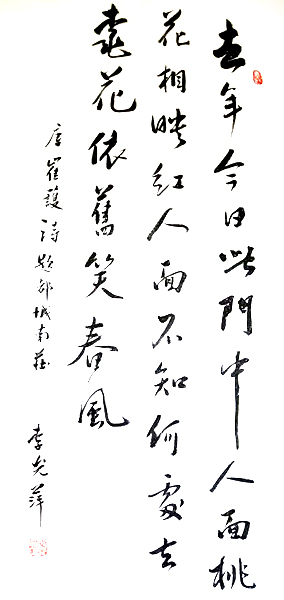 去年今日此門中人面桃
花相映紅人面不知何處去
桃花依舊笑春風
唐崔護詩題都城南莊
李光萍